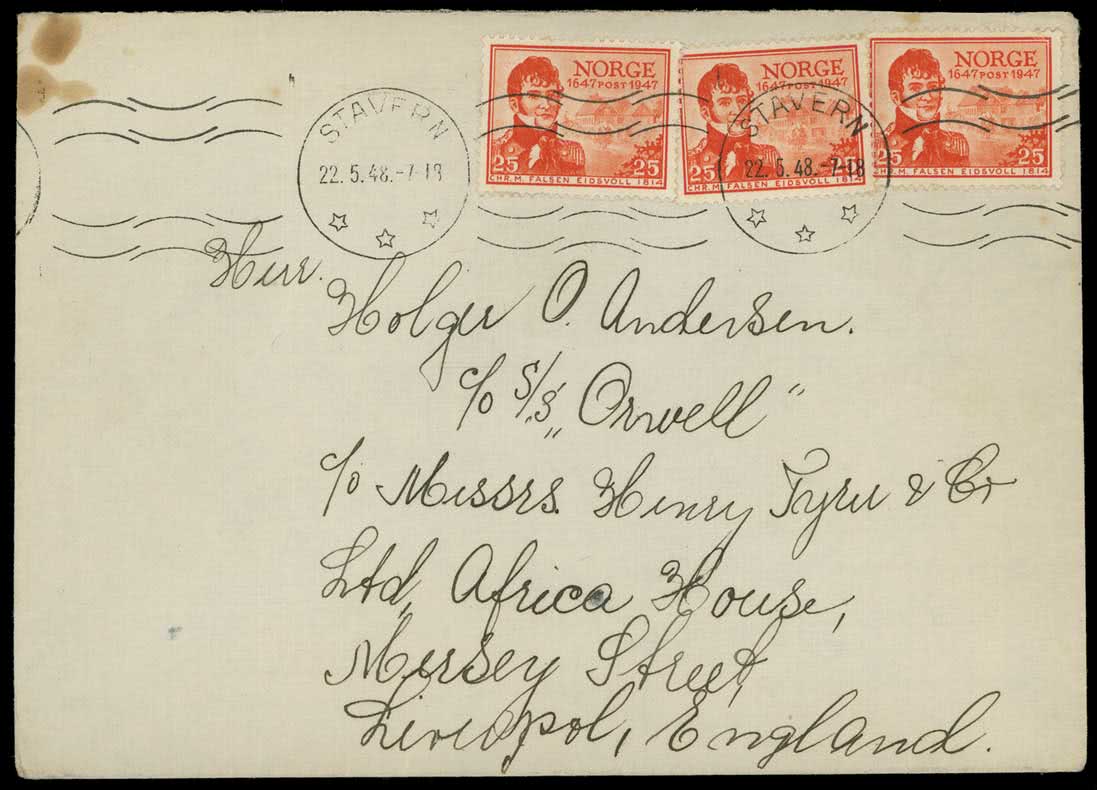 NORGE
1647 POST 1947
25 25
CHR. M. FALSEN EIDSVOLL 1814
NORGE
1647 POST 1947
25
CHR. M. FALSEN EIDSVOLL 1814
NORGE
1647 POST 1947
25 25
CHR. M. FALSEN EIDSVOLL 1814
STAVERN
22.5.48.-7-18
STAVERN
22.5.48.-7-18
Herr.
Holger O. Andersen.
c/o S/S „Orwell"
c/o Messrs. Henry Tyrer & Co
Ltd, Africa House,
Mersey Street,
Liverpol, England.